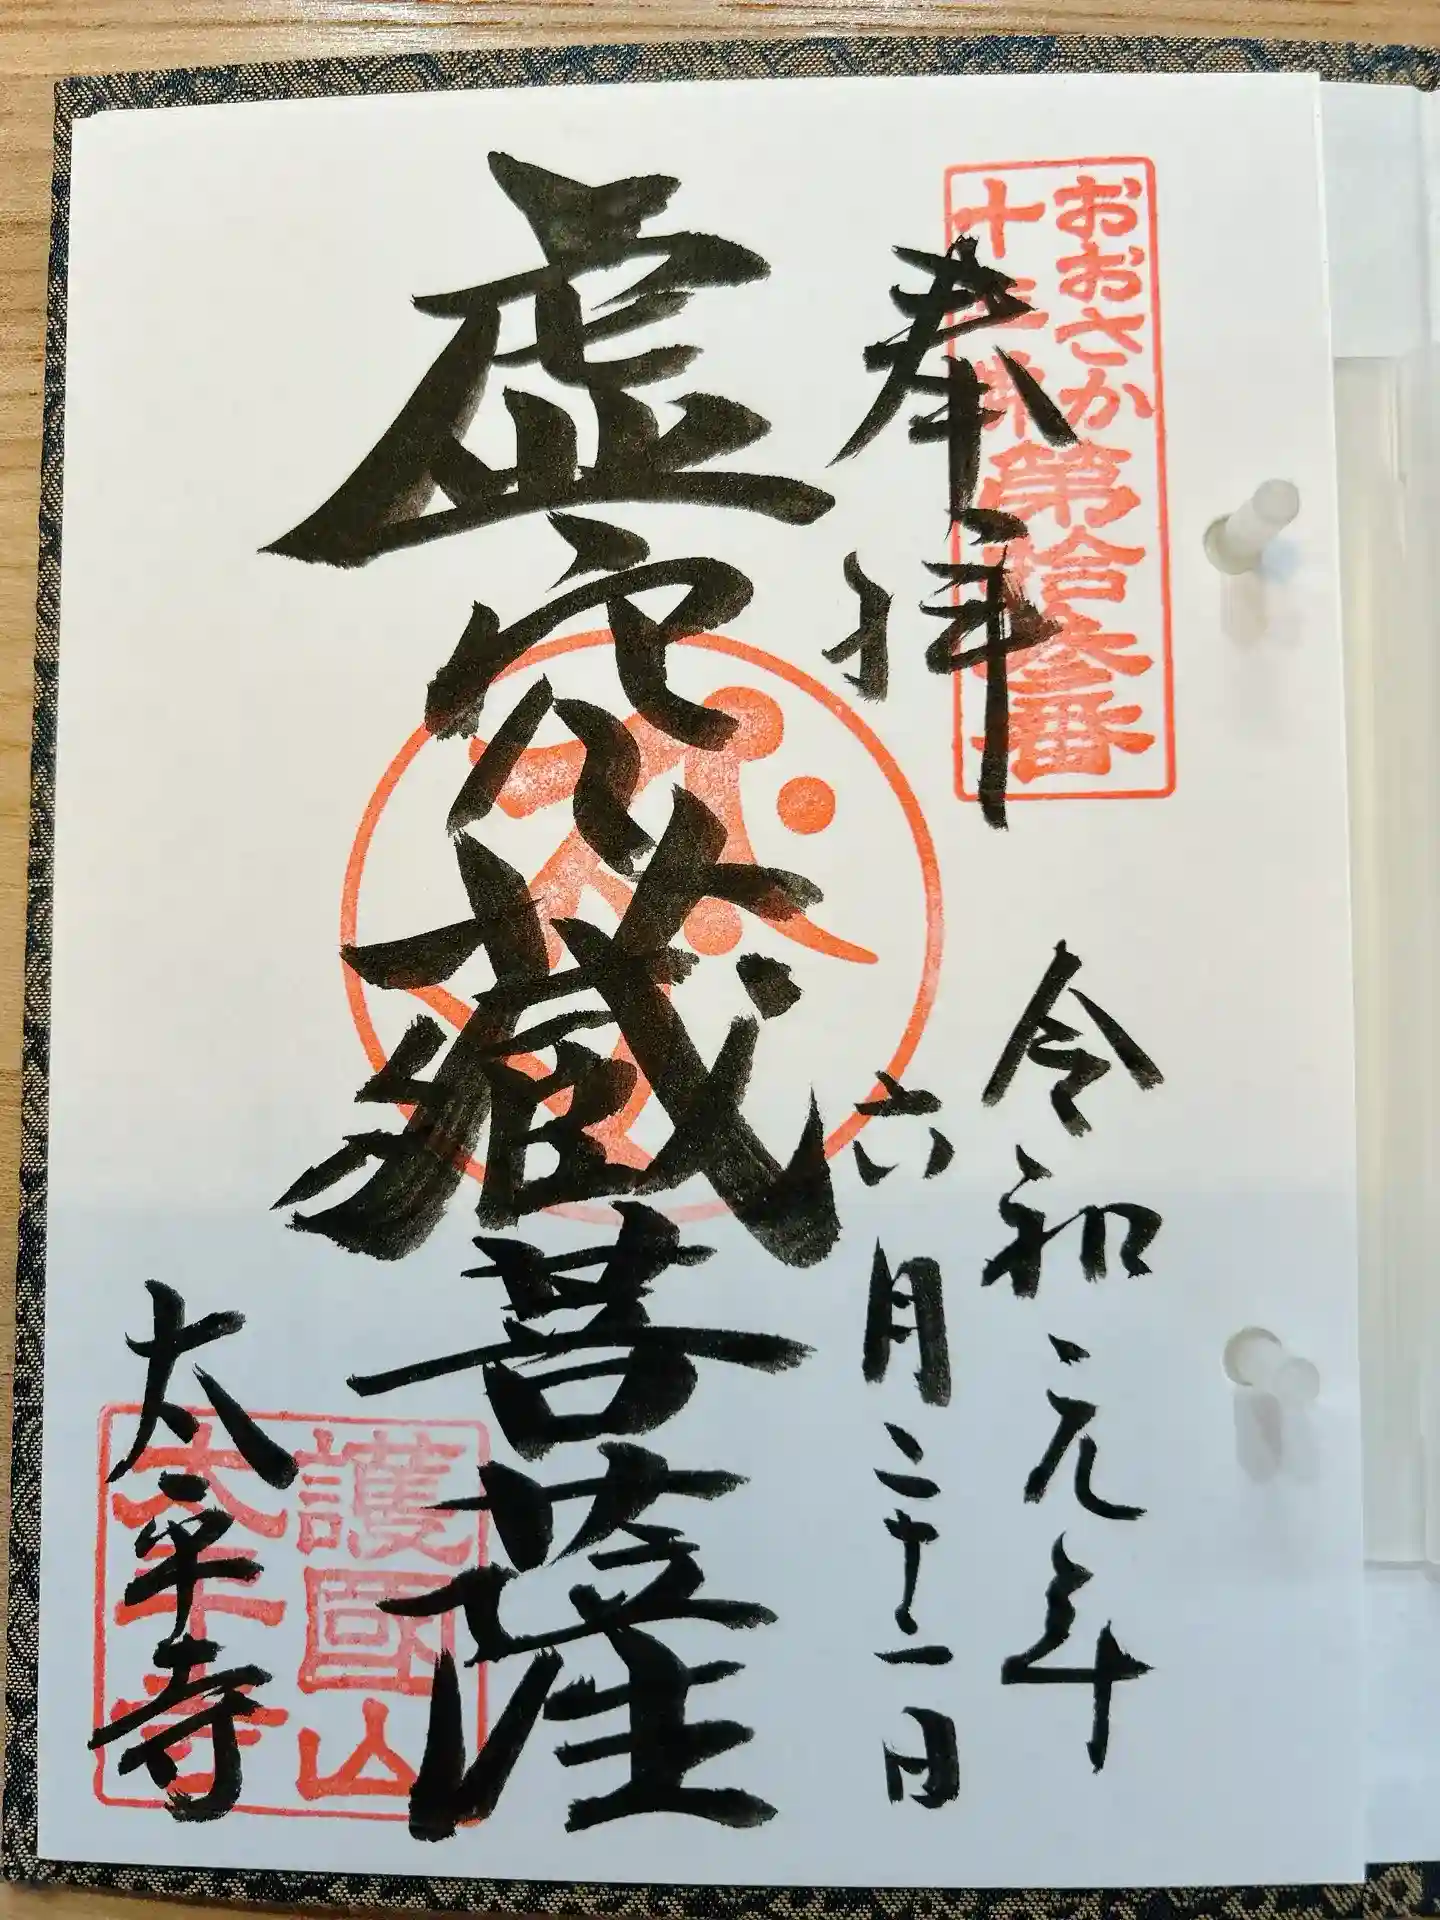 おおさか
十三佛第拾参番
奉拝
令和元年
六月二十一日
虚空蔵菩薩
護國山
太平寺
太平寺